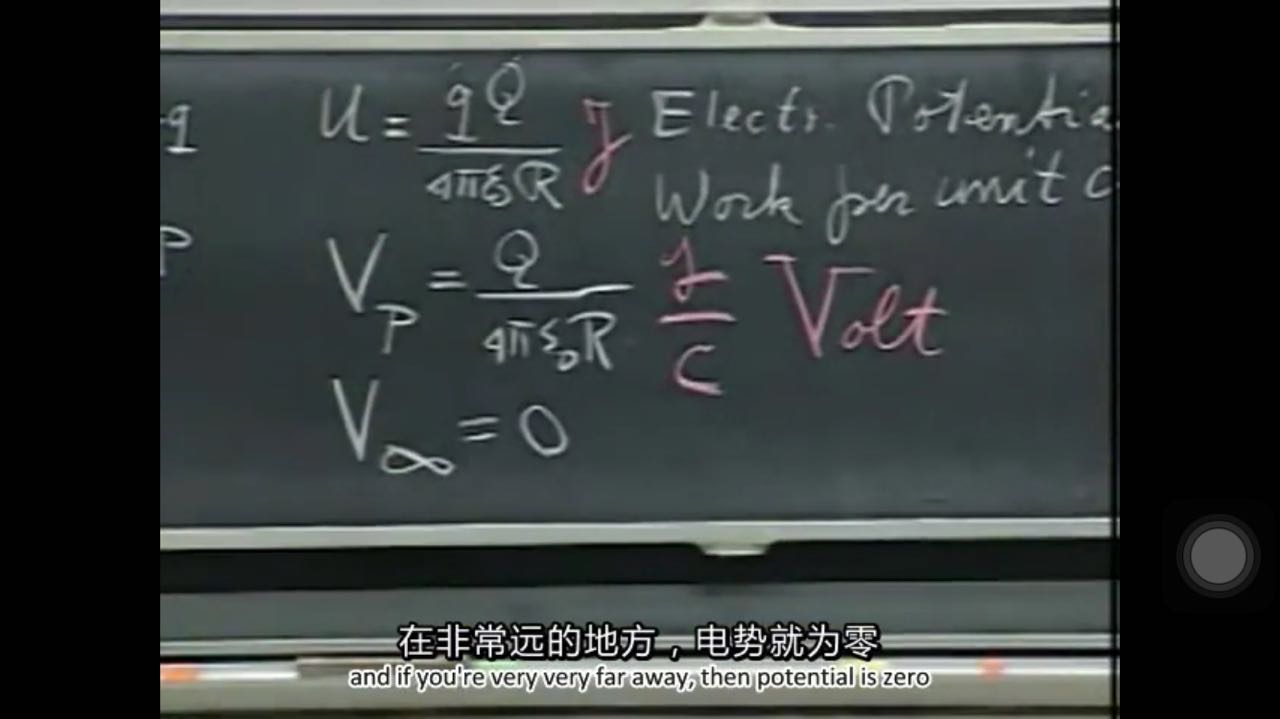 q
U = qQ / 4πε₀R J Electr. Potentia
Work per unit C
P
V_P = Q / 4πε₀R J/C Volt
V_∞ = 0
在非常远的地方，电势就为零
and if you're very very far away, then potential is zero